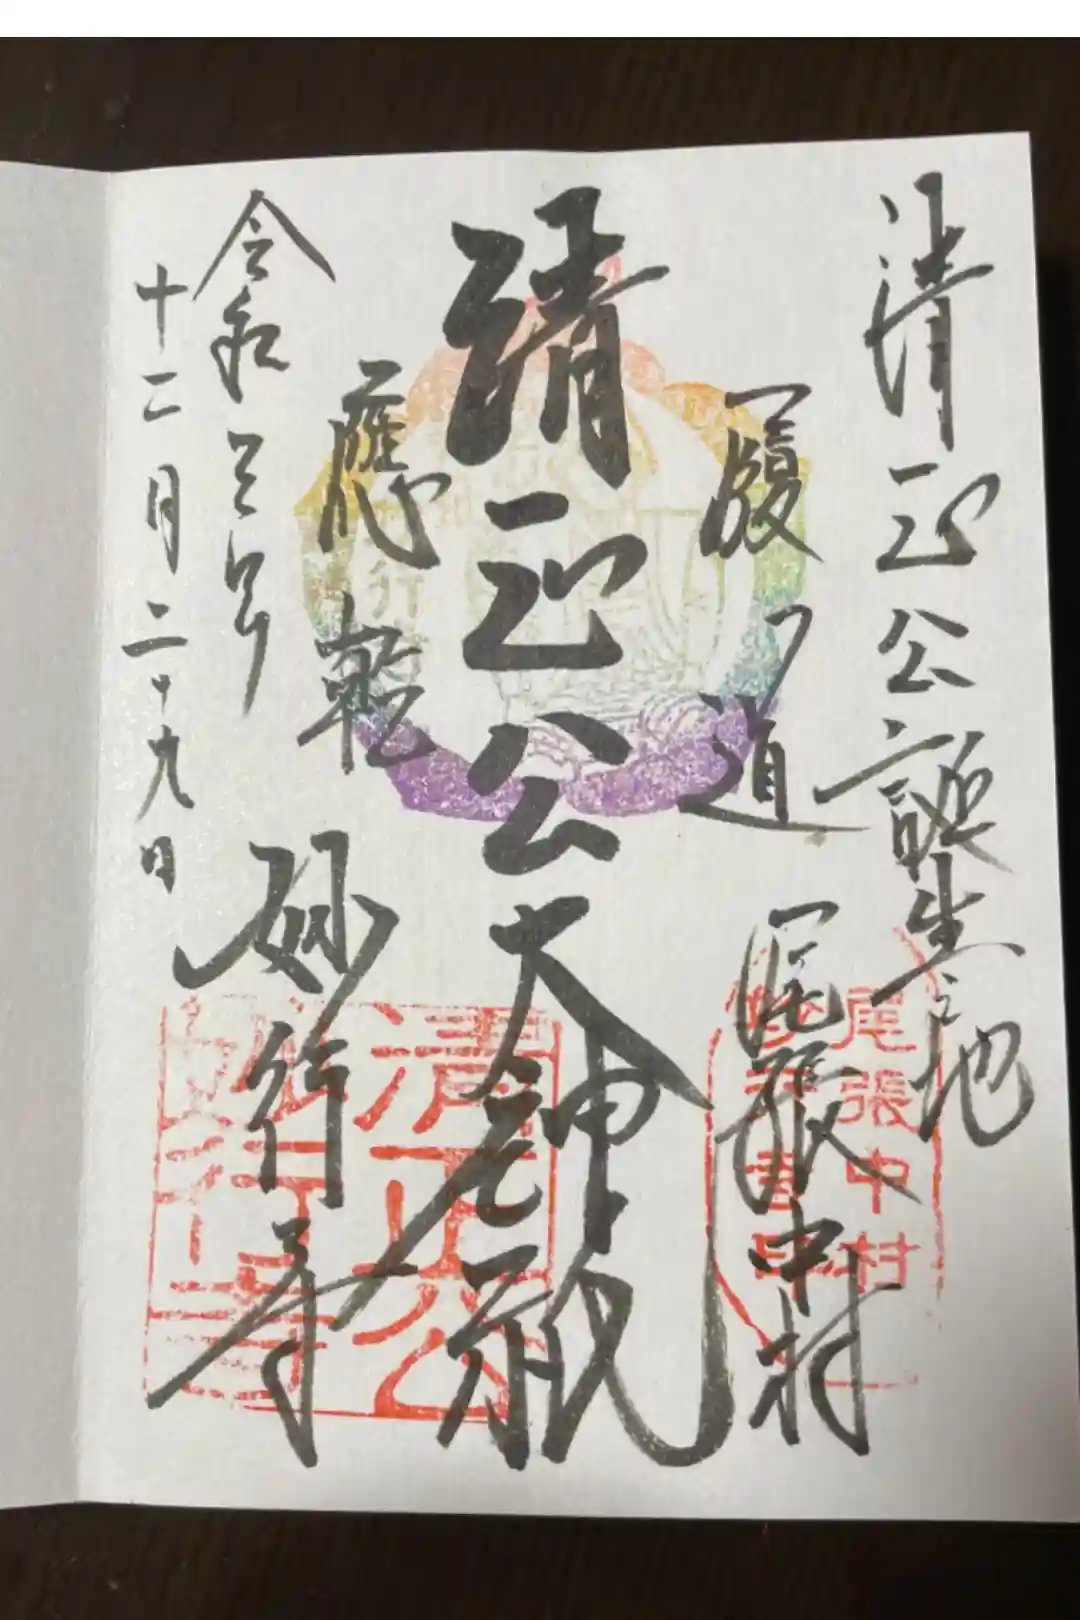 清正公誕生之地
履道
尾張中村
清正公大神祇
應乾
妙行寺
令和年
十二月二十九日
尾張中村
清正公
妙行寺